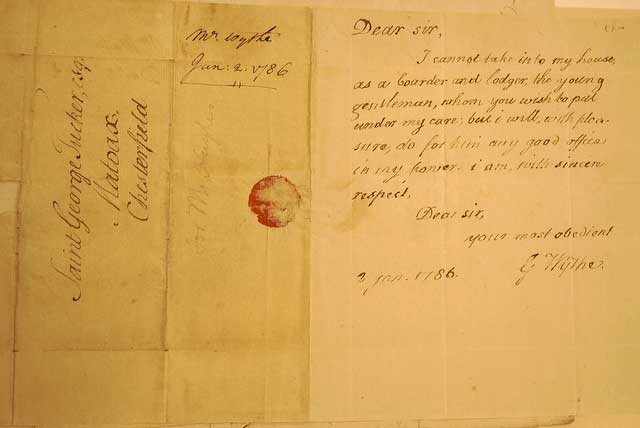 Saint George Tucker, esq.
Matoax.
Chesterfield
Mr Wythe
Jan: 2. 1786
Dear sir,
I cannot take into my house,
as a boarder and lodger, the young
gentleman, whom you wish to put
under my care; but i will, with plea-
sure, do for him any good offices
in my power. i am, with sincere
respect,
Dear sir,
your most obedient
G Wythe.
2 jan. 1786.